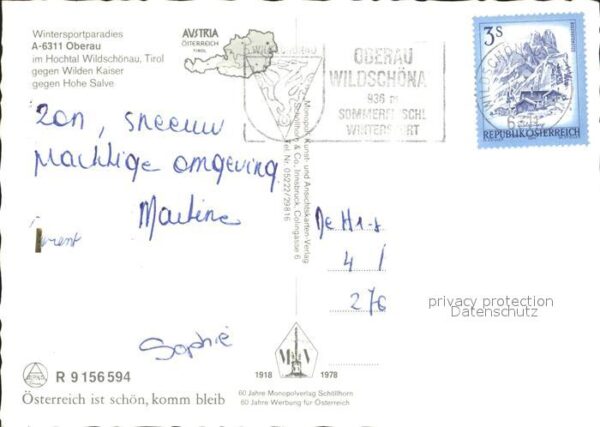 Wintersportparadies
A-6311 Oberau
im Hochtal Wildschönau, Tirol
gegen Wilden Kaiser
gegen Hohe Salve
AUSTRIA
ÖSTERREICH
TIROL
OBERAU
WILDSCHÖNA
936 m
WINTERSPORT
3s
REPUBLIK ÖSTERREICH
Monopol Kunst- und Ansichtskarten-Verlag
Schöllhorn & Co., Innsbruck, Colingasse 6
Tel. Nr. 05222/29816
zon, sneeuw
machtige omgeving.
Martine
Sophie
4 /
276
privacy protection
Datenschutz
R 9156594
1918 1978
60 Jahre Monopolverlag Schöllhorn
60 Jahre Werbung für Österreich
Österreich ist schön, komm bleib